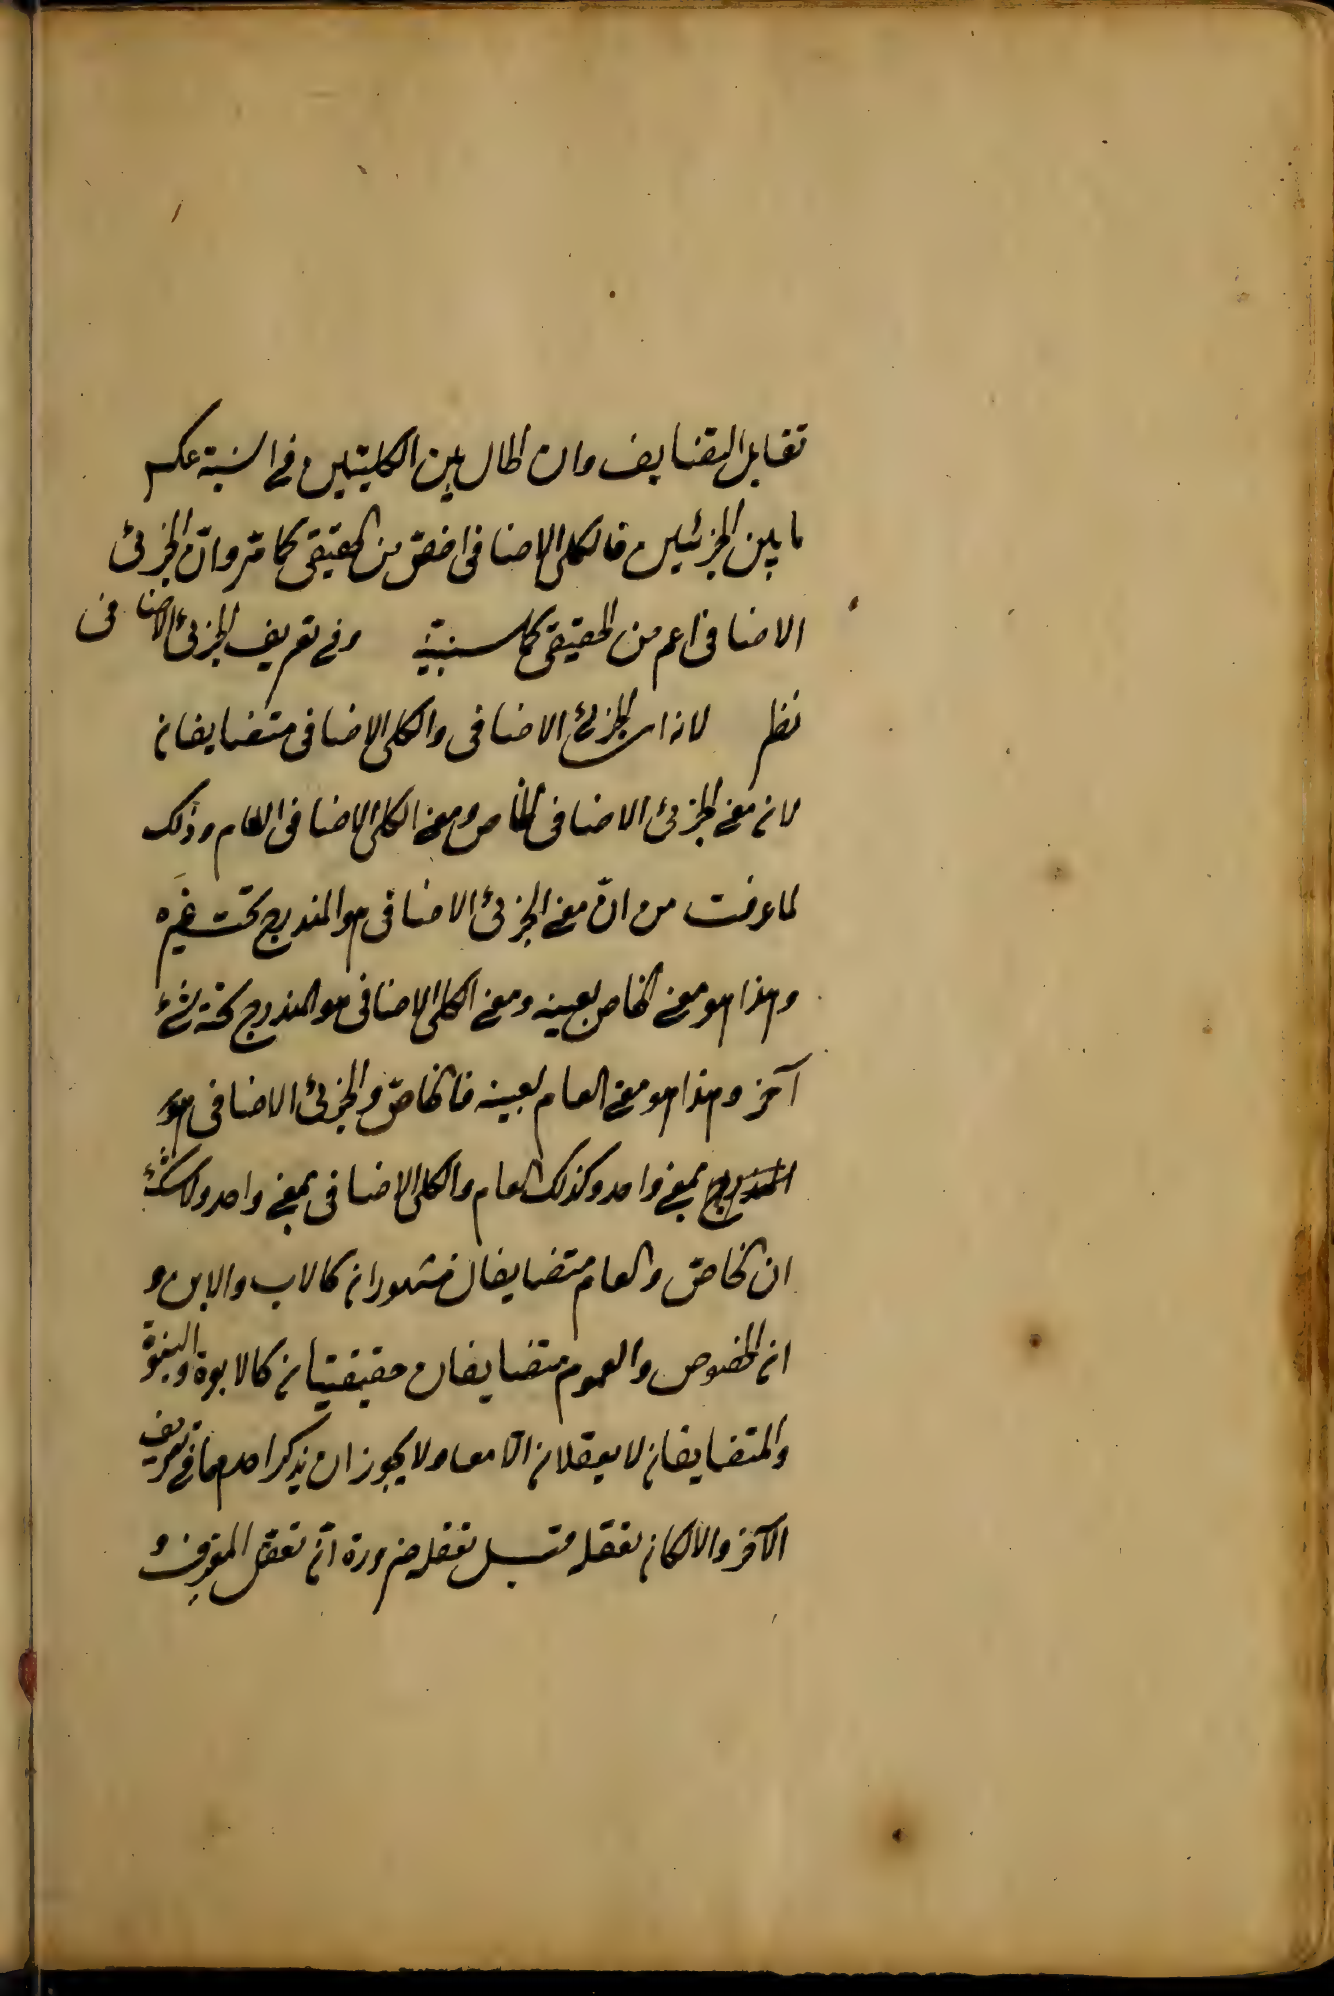 تقابل التضايف وان الحال بين الكليتين في النسبة عكس
ما بين الجزئيين فالكلي الاضافي اخصّ من الحقيقي كما مرّ وانّ الجزئي
الاضافي اعم من الحقيقي كما سنبيّنه وفي تعريف الجزئي الاضافي
نظر لانه اي الجزئي الاضافي والكلي الاضافي متضايفان
لان معنى الجزئي الاضافي الخاص ومعنى الكلي الاضافي العام وذلك
لما عرفت من انّ معنى الجزئي الاضافي هو المندرج تحت غيره
وهذا هو معنى الخاص بعينه ومعنى الكلي الاضافي هو المندرج تحته شئ
آخر وهذا هو معنى العام بعينه فالخاصّ والجزئي الاضافي هو
المندرج بمعنى واحد وكذلك العام والكلي الاضافي بمعنى واحد ولا شك
ان الخاصّ والعام متضايفان مشهوران كالاب والابن و
ان الخصوص والعموم متضايفان حقيقيتان كالابوة والبنوّة
والمتضايفان لا يعقلان الّا معا ولا يجوز ان يذكر احدهما في تعريف
الآخر والا لكان تعقله قبل تعقله ضرورة انّ تعقّل المعرِف و